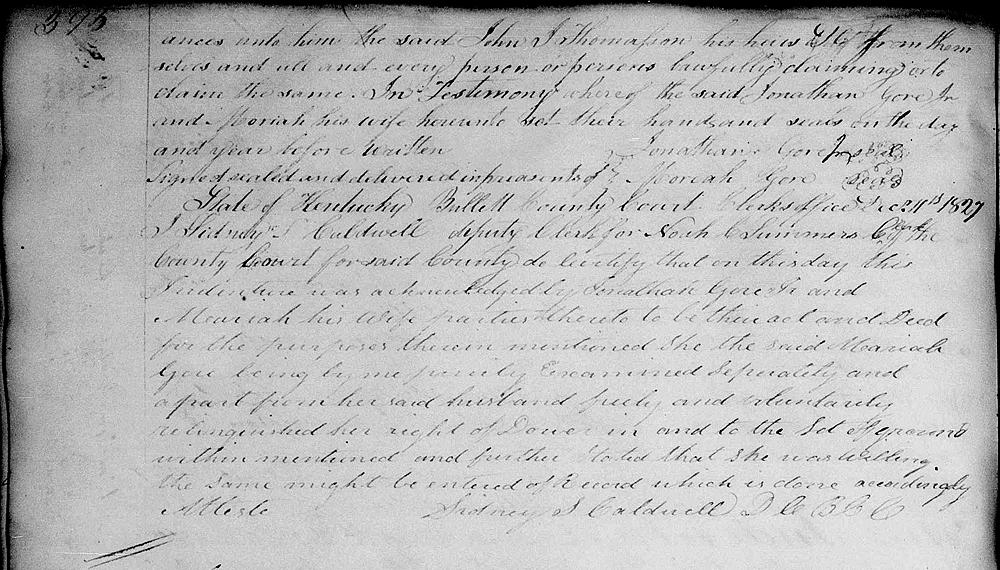 395
ances unto him the said John J Thomasson his heirs &c from them
selves and all and every person or persons lawfully claiming or to
claim the same. In Testimony whereof the said Jonathan Gore Jr
and Moriah his wife hereunto set their hands and seals on the day
and year before written Jonathan Gore Jr seal
Signed sealed and delivered in presents of Moreah Gore seal
State of Kentucky Bullett County Court Clerks office Dec 24th 1827
I Sidney S Caldwell deputy Clerk for Noah C Summers Clerk of the
County Court for said County do Certify that on this day this
Indenture was acknowledged by Jonathan Gore Jr and
Meariah his Wife parties thereto to be their act and Deed
for the purposes therein mentioned She the said Mareah
Gore being by me privily Examined Seperately and
apart from her said husband freely and voluntarily
relinquished her right of Dower in and to the Lot of ground
within mentioned and further Stated that She was Willing
the same might be entered of Record which is done accordingly
Atteste Sidney S Caldwell D C B C C